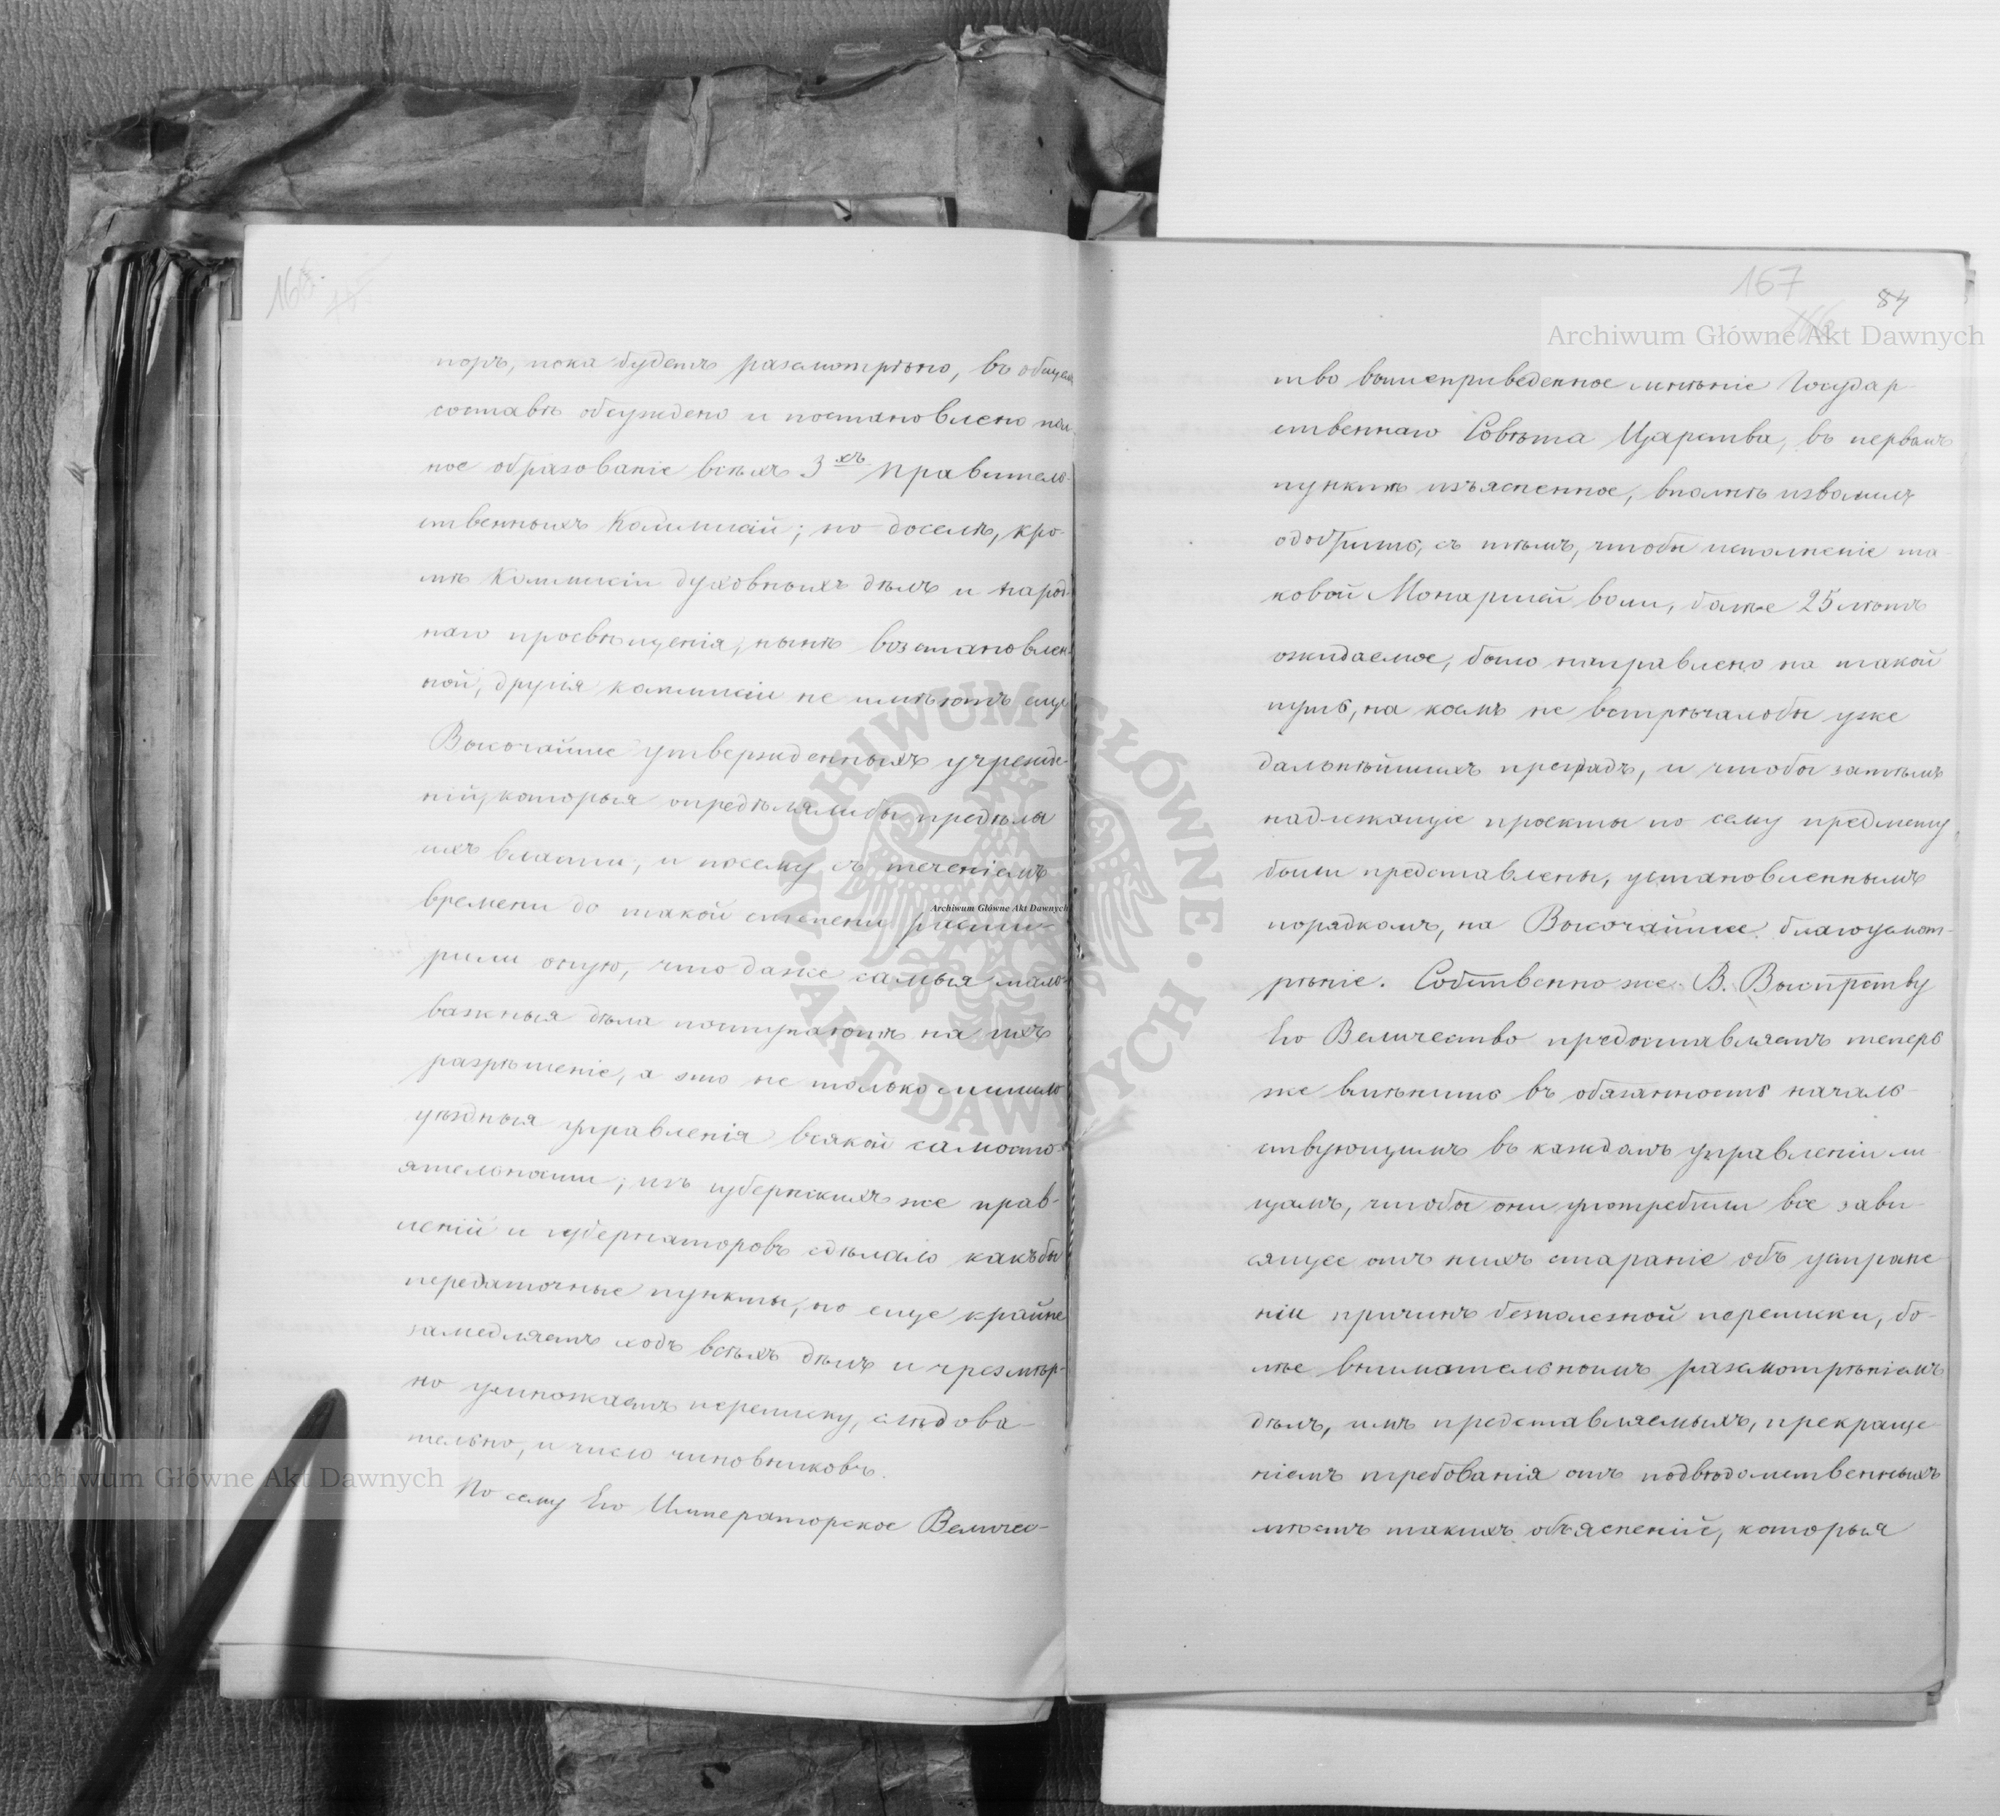 166.
поръ, пока будетъ разсмотрѣно, въ общемъ
составѣ обсуждено и постановлено пол-
ное образованіе всѣхъ 3хъ Правитель-
ственныхъ Коммисій; но доселѣ, кро-
мѣ Коммисіи духовныхъ дѣлъ и народ-
наго просвѣщенія, нынѣ возстановлен-
ной, другія коммисіи не имѣютъ еще
Высочайше утвержденныхъ учрежде-
ній, которыя опредѣлялибы предѣлы
ихъ власти, и посему съ теченіемъ
времени до такой степени расши-
рили оную, что даже самыя мало-
важныя дѣла поступаютъ на ихъ
разрѣшеніе, а это не только лишило
уѣздныя управленія всякой самосто-
ятельности; изъ губернскихъ же прав-
леній и губернаторовъ сдѣлало какъбы
передаточные пункты, но еще крайне
замедляетъ ходъ всѣхъ дѣлъ и чрезмѣр-
но умножаетъ переписку, слѣдова-
тельно, и число чиновниковъ.
По сему Его Императорское Величес-
167
84
тво вышеприведенное мнѣніе Государ-
ственнаго Совѣта Царства, въ первомъ
пунктѣ изъясненное, вполнѣ изволилъ
одобрить, съ тѣмъ, чтобы исполненіе та-
ковой Монаршей воли, болѣе 25 лѣтъ
ожидаемое, было направлено на такой
путь, на коемъ не встрѣчалобы уже
дальнѣйшихъ преградъ, и чтобы затѣмъ
надлежащіе проекты по сему предмету
были представлены, установленнымъ
порядкомъ, на Высочайшее благоусмот-
рѣніе. Собственно же В. Выспрству
Его Величество предоставляетъ теперь
же вмѣнить въ обязанность началь-
ствующимъ въ каждомъ управленіи ли-
цамъ, чтобы они употребили все зави-
сящее отъ нихъ стараніе объ устране-
ніи причинъ безполезной переписки, бо-
лѣе внимательнымъ разсмотрѣніемъ
дѣлъ, имъ представляемыхъ, прекраще-
ніемъ требованія отъ подвѣдомственныхъ
мѣстъ такихъ объясненій, которыя
Archiwum Główne Akt Dawnych
Archiwum Główne Akt Dawnych
Archiwum Główne Akt Dawnych
ARCHIWUM GŁÓWNE · AKT DAWNYCH ·